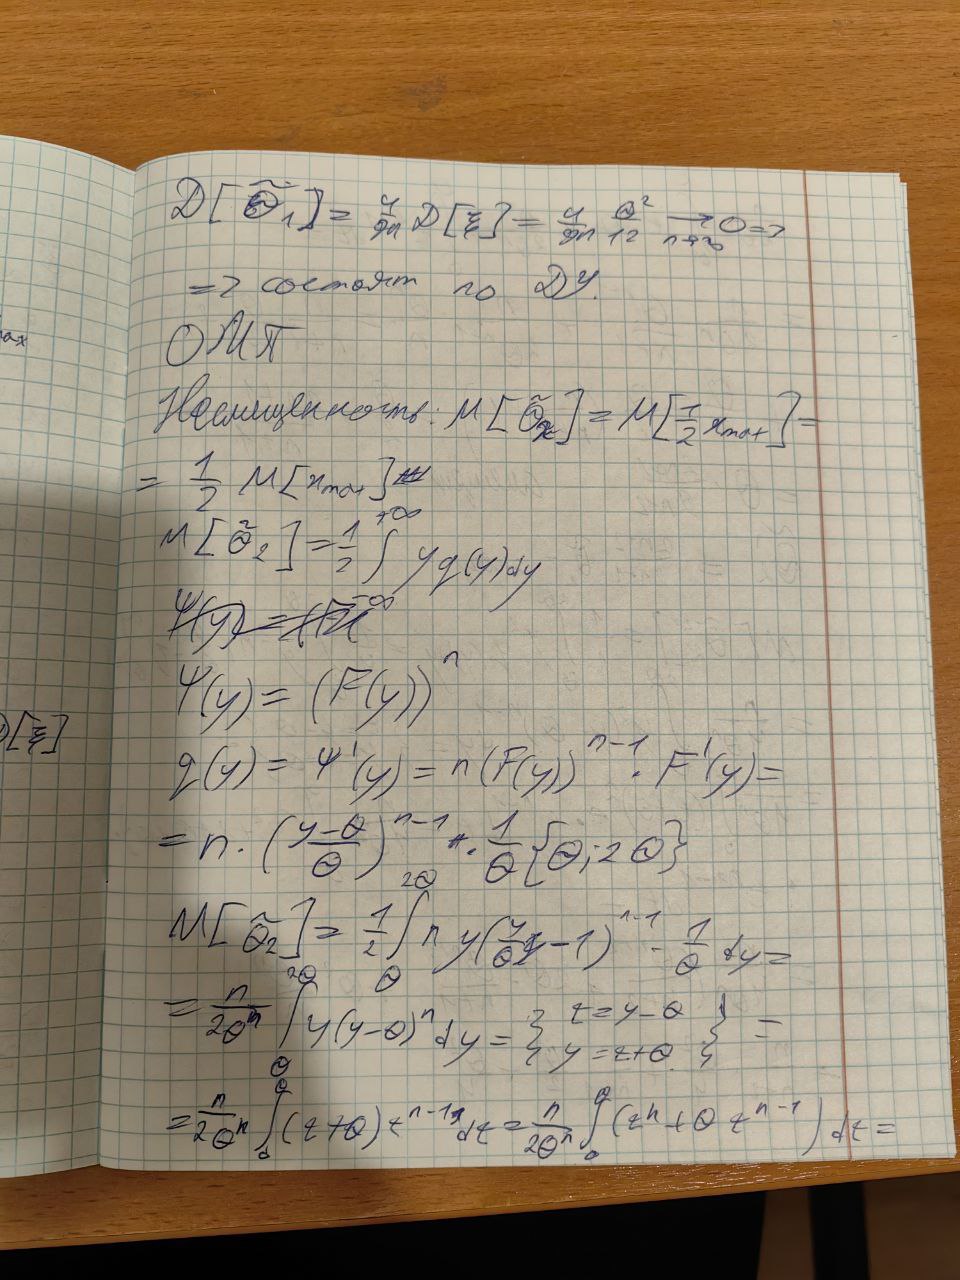 ax
D[ξ]
D[θ̃₁] = 4/9n D[ξ] = 4/9n θ²/12 →(n→∞) 0 =>
=> состоят по ДУ.
ОМП
Несмещенность: M[θ̃₂] = M[1/2 xmax] =
= 1/2 M[xmax]
M[θ̃₂] = 1/2 ∫_{-∞}^{+∞} y g(y) dy
Ψ(y) = (F(y))ⁿ
g(y) = Ψ'(y) = n(F(y))ⁿ⁻¹ · F'(y) =
= n · ((y-θ)/θ)ⁿ⁻¹ · 1/θ {θ; 2θ}
M[θ̃₂] = 1/2 ∫_θ^{2θ} n y(y/θ - 1)ⁿ⁻¹ · 1/θ dy =
= n/2θⁿ ∫_θ^{2θ} y(y-θ)ⁿ dy = { z = y-θ y = z+θ } =
= n/2θⁿ ∫_0^θ (z+θ) zⁿ⁻¹ dz = n/2θⁿ ∫_0^θ (zⁿ + θ zⁿ⁻¹) dz =